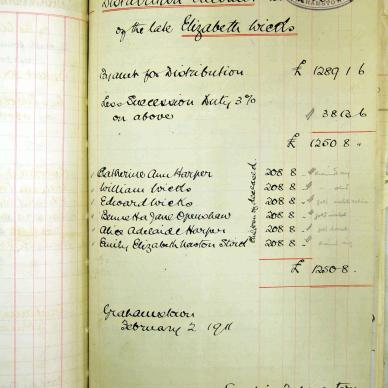 Distribution Account
of the late Elizabeth Wicks
Amount for Distribution £ 1289 1 6
Less Succession Duty 3%
on above " 38 13 6
£ 1250 8 "
Catherine Ann Harper 208 8 -
William Wicks 208 8 -
Edward Wicks 208 8 -
Jane Openshaw 208 8 -
Alice Adelaide Harper 208 8 -
Emily Elizabeth 208 8 -
children of deceased
£ 1250 8 -
Grahamstown
February 2 1911